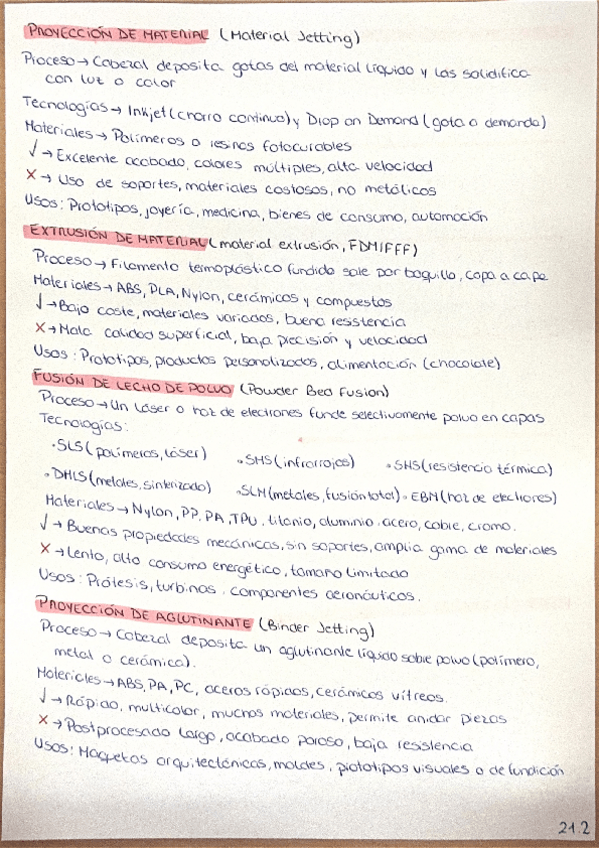 PROYECCIÓN DE MATERIAL (Material Jetting)
Proceso → Cabezal deposita gotas del material líquido y las solidifica
con luz o calor
Tecnologías → Inkjet (chorro continuo) y Drop on Demand (gota a demanda)
Materiales → Polímeros o resinas fotocurables
✓ → Excelente acabado, colores múltiples, alta velocidad
X → Uso de soportes, materiales costosos, no metálicos
Usos: Prototipos, joyería, medicina, bienes de consumo, automoción
EXTRUSIÓN DE MATERIAL (material extrusión, FDM/FFF)
Proceso → Filamento termoplástico fundido sale por boquilla, capa a capa
Materiales → ABS, PLA, Nylon, cerámicos y compuestos
✓ → Bajo coste, materiales variados, buena resistencia
X → Mala calidad superficial, baja precisión y velocidad
Usos: Prototipos, productos personalizados, alimentación (chocolate)
FUSIÓN DE LECHO DE POLVO (Powder Bed Fusion)
Proceso → Un láser o haz de electrones funde selectivamente polvo en capas
Tecnologías:
·SLS (polímeros, láser) ·SHS (infrarrojos) ·SHS (resistencia térmica)
·DMLS (metales, sinterizado) ·SLM (metales, fusión total) ·EBM (haz de electrones)
Materiales → Nylon, PP, PA, TPU, titanio, aluminio, acero, cobre, cromo.
✓ → Buenas propiedades mecánicas, sin soportes, amplia gama de materiales
X → Lento, alto consumo energético, tamaño limitado
Usos: Prótesis, turbinas, componentes aeronáuticos.
PROYECCIÓN DE AGLUTINANTE (Binder Jetting)
Proceso → Cabezal deposita un aglutinante líquido sobre polvo (polímero,
metal o cerámica).
Materiales → ABS, PA, PC, aceros rápidos, cerámicos vítreos.
✓ → Rápido, multicolor, muchos materiales, permite anidar piezas
X → Postprocesado largo, acabado poroso, baja resistencia
Usos: Maquetas arquitectónicas, moldes, prototipos visuales o de fundición
21.2